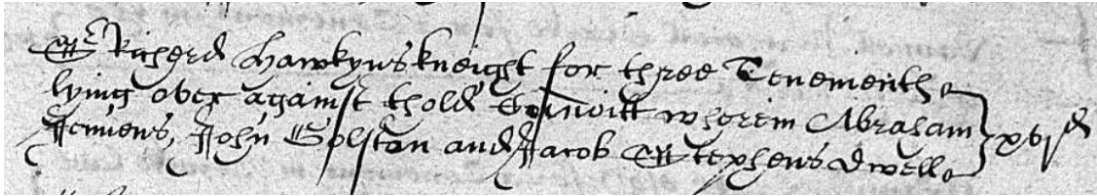 Sr Richard Hawkyns kneight for three Tenements
lying over against thold Conduitt wherein Abraham
Jennens, John Golston and Jacob Stephens dwell xvjd